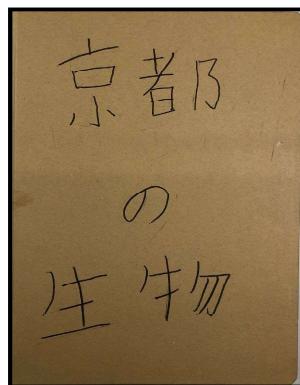 京都
の
生物